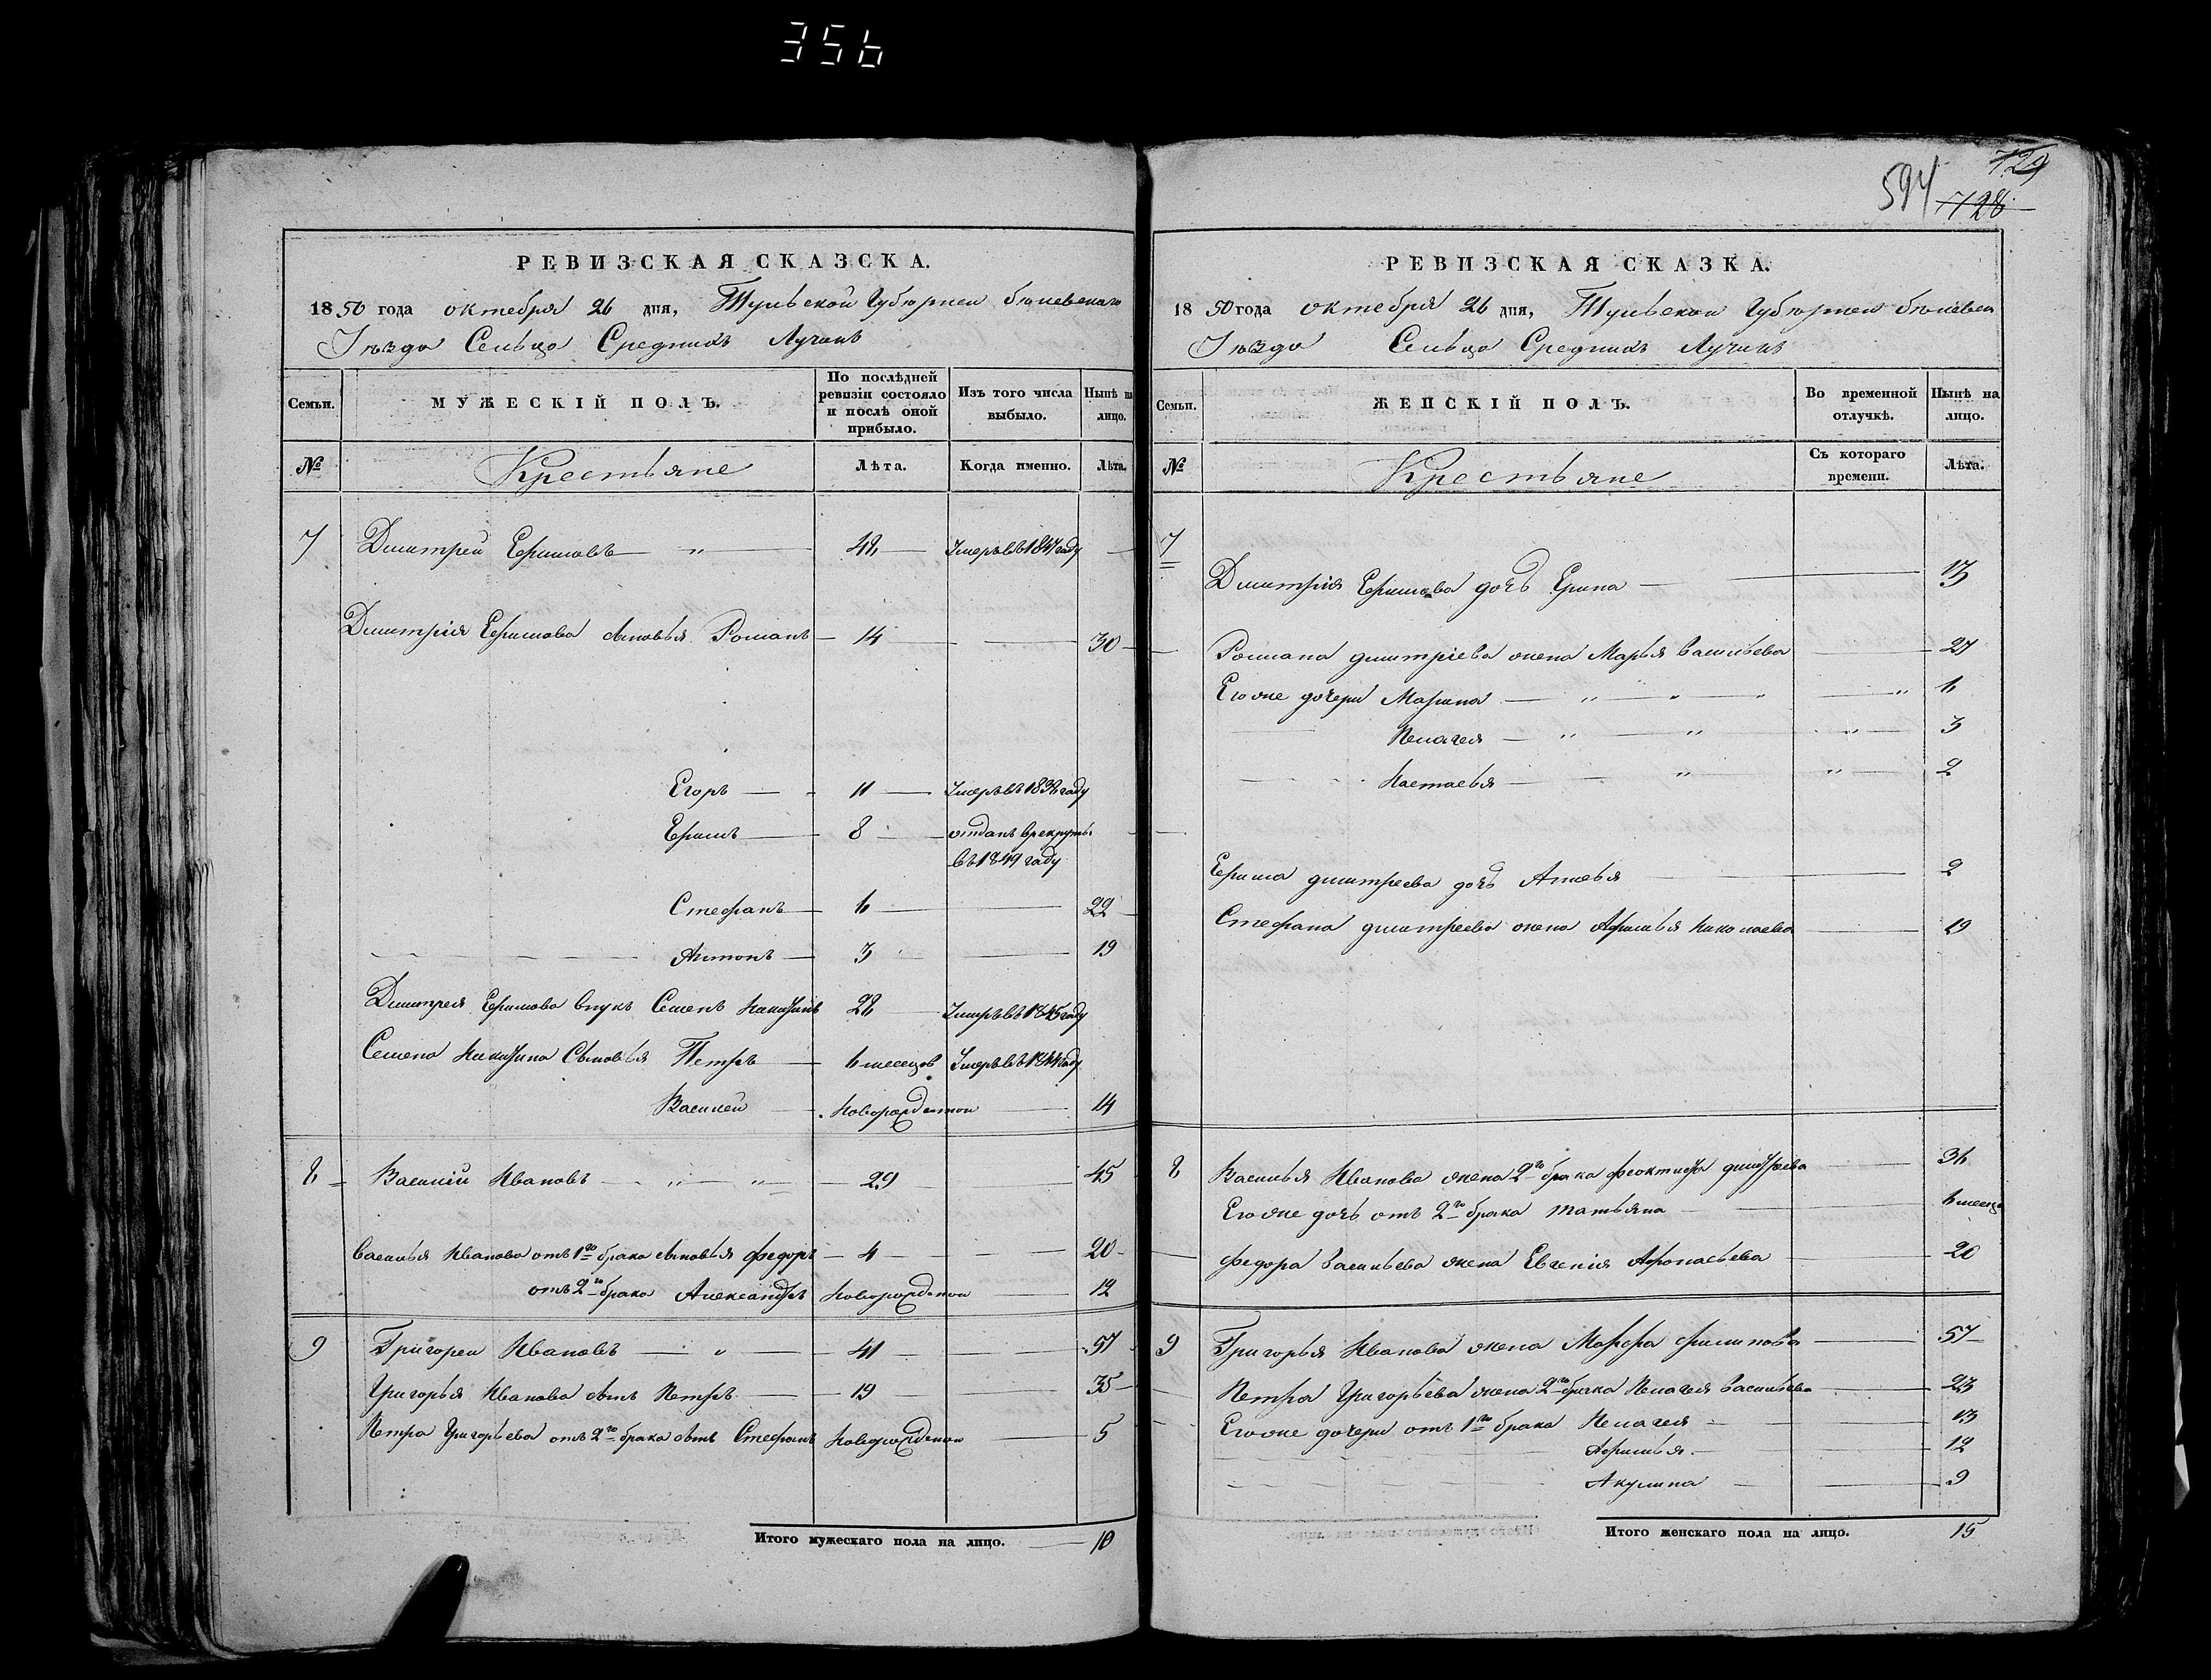 356
594 729
728
РЕВИЗСКАЯ СКАЗСКА.
1850 года октебря 26 дня, Тульской Губернеи белевскаго
Уѣзда Сельца Среднихъ Лучакъ
Семьи.
МУЖЕСКІЙ ПОЛЪ.
По послѣдней ревизіи состояло и послѣ оной прибыло.
Изъ того числа выбыло.
Нынѣ на лицо.
№ Крестьяне Лѣта. Когда именно. Лѣта.
7 Дмитрей Ефимовъ — " — 48 — Умеръ въ 1847 году —
Дмитрія Ефимова сыновья Романъ — 14 — 30
Егоръ — 11 — Умеръ въ 1836 году
Ефимъ — 8 — отданъ врекруты
въ 1849 году
Стефанъ — 6 — 22
Антонъ — 3 — 19
Дмитрея Ефимова внукъ Семенъ Никитинъ 28 Умеръ въ 1845 году
Семена Никитина Сыновья Петръ — 6 месецов Умеръ въ 1844 году
Василей — Новорожденной — 14
8 Василій Ивановъ — " — " — 29 — 45
Василья Иванова отъ 1го брака сыновья федоръ — 4 — 20
отъ 2го брака Александръ Новорожденой — 12
9 Григореи Ивановъ — " — 41 — 57
Григорья Иванова сынъ Петръ — 19 — 35
Петра Григорьева отъ 2го брака сынъ Стефанъ Новорожденои — 5
Итого мужескаго пола на лицо. — 10
РЕВИЗСКАЯ СКАЗКА.
1850 года октебря 26 дня, Тульскои Губернеи белевск
Уѣзда Сельца Среднихъ Лучакъ
Семьи.
ЖЕНСКІЙ ПОЛЪ.
Во временной отлучкѣ.
Нынѣ на лицо.
№ Крестьяне Съ котораго времени. Лѣта.
7
Дмитрія Ефимова дочь Ерина — 17
Романа дмитріева жена Марья Васильева — 27
Егоже дочери Марина — " — " — " — " 6
Пелагея — " — " — " — 3
Настасья — " " — 2
Ефима дмитреева дочь Анисья — 2
Стефана дмитреева жена Афимья Николаева — 19
8 Василья Иванова жена 2го брака феоктиста дмитрева — 36
Егоже дочь отъ 2го брака татьяна — 6 месец
федора Васильева жена Евгенія Афонасьева — 20
9 Григорья Иванова жена Марфа филипова — 57
Петра Григорьева жена 2го брака Пелагея Васильева — 23
Егоже дочери отъ 1го брака Пелагея — 13
Афимья — 12
Акулина — 9
Итого женскаго пола на лицо. 15